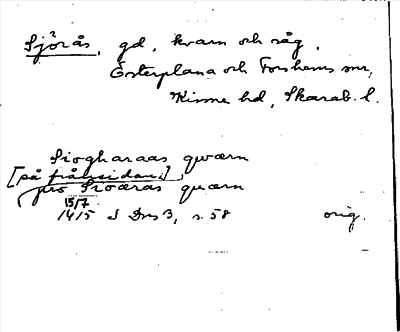 Sjörås, gd, kvarn och såg,
Österplana och Forshems snr,
Kinne hd, Skarab. l.
Sioghæraas qwærn
[på frånsidan:]
pro Sioæras quærn
15/7
1415 S Dns 3, s. 58 orig.